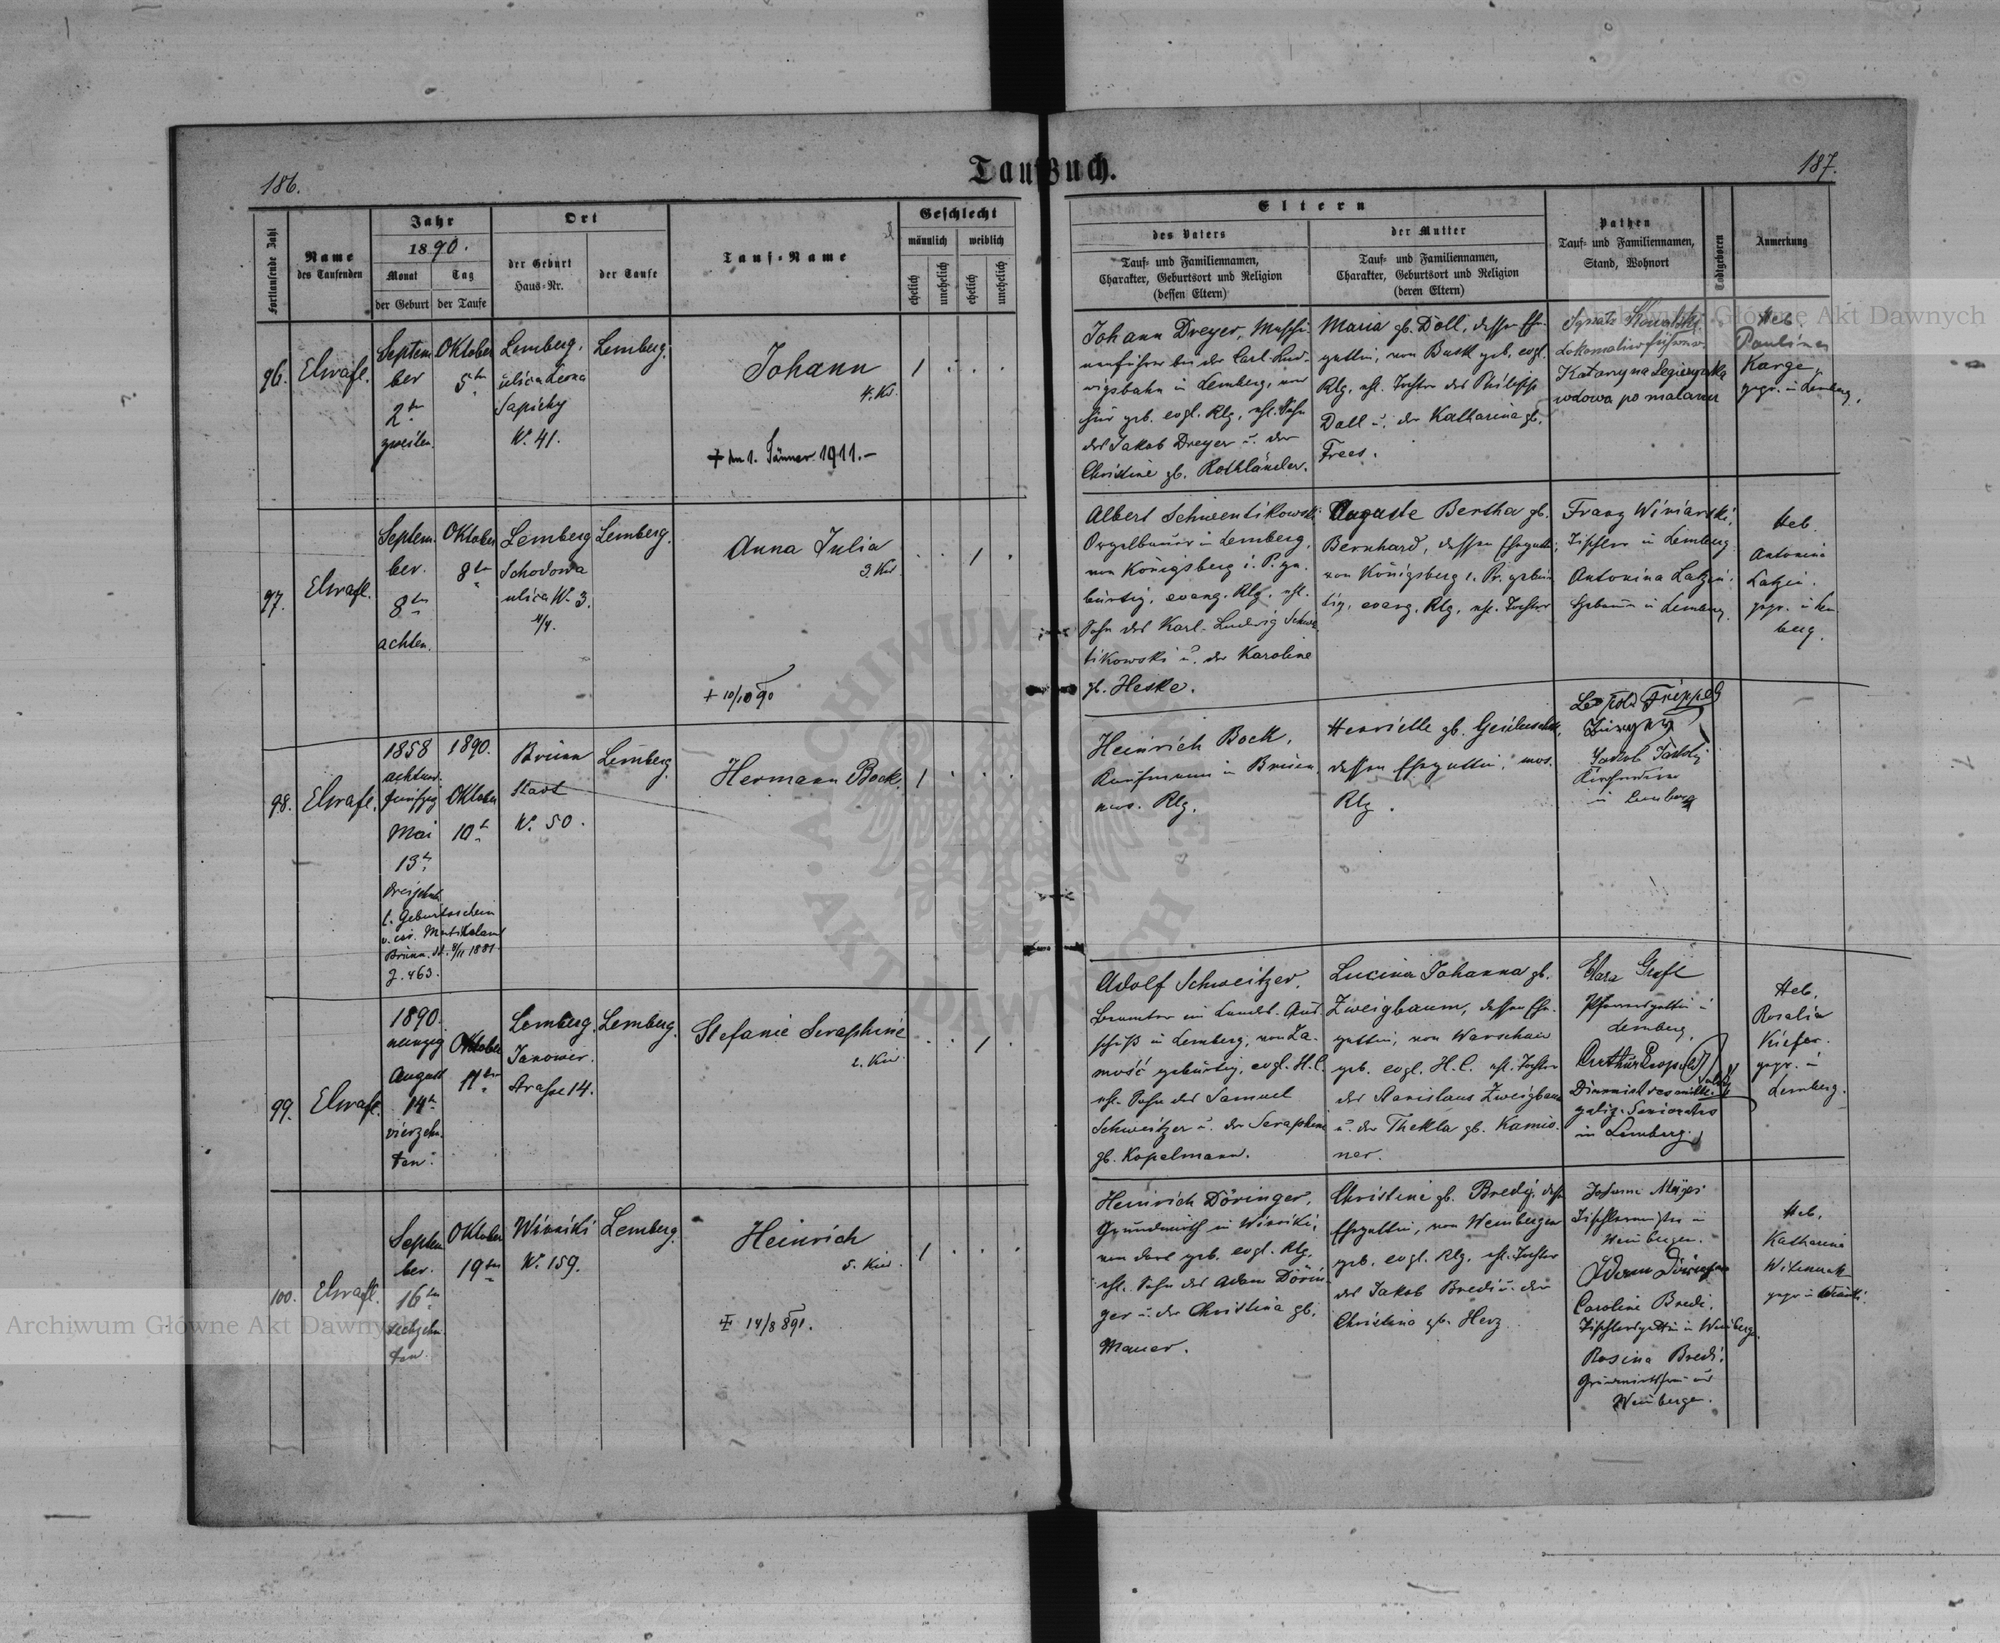 186.
Taufbuch.
187.
Fortlaufende Zahl
Name
des Taufenden
Jahr
1890.
Monat
der Geburt
Tag
der Taufe
Ort
der Geburt
Haus=Nr.
der Taufe
Tauf=Name
Geschlecht
männlich
weiblich
ehelich
unehelich
ehelich
unehelich
Eltern
des Vaters
Tauf= und Familiennamen,
Charakter, Geburtsort und Religion
(dessen Eltern)
der Mutter
Tauf= und Familiennamen,
Charakter, Geburtsort und Religion
(deren Eltern)
Pathen
Tauf= und Familiennamen,
Stand, Wohnort
Todtgeboren
Anmerkung
96.
Septem
ber
2ten
zweiten
Oktober
5ten
Lemberg,
ulica Leona
Sapiehy
N. 41.
Lemberg.
Johann
4. Kd.
+ am 1. Jänner 1911.–
1
Johann Dreyer, Maschi-
nenführer bei der Carl-Lud-
wigsbahn in Lemberg, von
hier geb. evgl. Rlg, ehl. Sohn
des Jakob Dreyer u. der
Christine gb. Rothländer.
Maria gb. Doll, dessen Ehe-
gattin, von Busk geb. evgl.
Rlg, ehl. Tochter des Philipp
Doll u. der Katharina gb.
Frees.
Ignatz Kowalski
Lokomotivführer
Katarzyna Legierzyńska
wdowa po malarzu
Heb.
Paulina
Karge,
gepr. in Lemberg.
97.
Septem
ber.
8ten
achten.
Oktober
8ten
Lemberg
Schodowa
ulica N. 3.
4/4.
Lemberg.
Anna Julia
3. Kd.
+ 10/10 90
1
Albert Schwentikowski
Orgelbauer in Lemberg,
von Königsberg i. P. ge-
bürtig, evang. Rlg, ehl.
Sohn des Karl-Ludwig Schwe
tikowski u. der Karoline
gb. Heske.
Auguste Bertha gb.
Bernhard, dessen Ehegattin,
von Königsberg i. Pr. gebür
tig, evang. Rlg, ehl. Tochter
Franz Winiarski,
Tischler in Lemberg
Antonina Latzin.
Hebamme in Lemberg.
Heb.
Antonina
Latzin.
gepr. in Lem
berg.
98.
1858
achtund
fünfzig
Mai
13t
dreizehnt
l. Geburtsschein
v. isr. Matrikelamt
Brünn. dt. 4/11 1881
Z. 463.
1890.
Oktober
10t
Brünn
Stadt
N. 50.
Lemberg.
Hermann Bock.
1
Heinrich Bock,
Kaufmann in Brünn,
mos. Rlg.
dessen Ehegattin, mos.
Rlg.
Jakob
in Lemberg
99.
1890
neunzig
August
14t
vierzehn
ten.
Oktober
11ten
Lemberg.
Janower
Straße 14.
Lemberg.
Stefanie Seraphine
2. Kd.
1
Adolf Schweitzer,
Beamter im Landes Aus
schuß in Lemberg, von Za-
mość gebürtig, evgl. H. C.
ehl. Sohn des Samuel
Schweitzer u. der Seraphine
gb. Kopelmann.
Lucina Johanna gb.
Zweigbaum, dessen Ehe-
gattin, von Warschau
geb. evgl. H. C. ehl. Tochter
des Stanislaus Zweigbaum
u. der Thekla gb. Kamio-
ner.
Clara
Pfarrersgattin in
Lemberg,
Arthur Leopold
galiz. Seniorates
in Lemberg.
Heb.
Rosalia
Kiefer.
gepr. in
Lemberg.
100.
Septem
ber.
16ten
sechzehn
ten.
Oktober
19ten
Winniki
N. 159.
Lemberg.
Heinrich
5. Kd.
+ 14/8 891.
1
Heinrich Döringer,
Grundwirth in Winniki,
von dort geb. evgl. Rlg.
ehl. Sohn des Adam Dörin-
ger u. der Christina gb.
Mauer.
Christine gb. Bredy, dess
Ehegattin, von Weinbergen
geb. evgl. Rlg, ehl. Tochter
des Jakob Bredi u. der
Christina gb. Herz
Weinbergen.
Adam Döringer
Caroline Bredi,
Tischlersgattin in Weinbergen.
Rosina Bredi,
Weinbergen.
Heb.
Katharina
Witzmack
gepr. in Winniki.
Archiwum Główne Akt Dawnych
Archiwum Główne Akt Dawnych